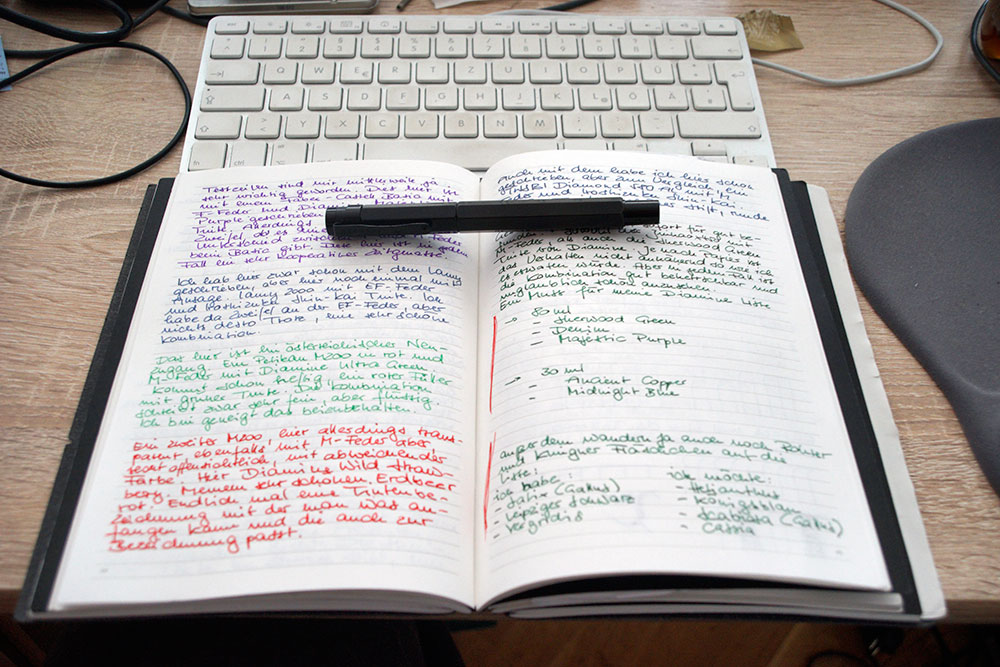 Testzeilen sind mir mittlerweile ja
sehr wichtig geworden. Das hier ist
mit einem Faber-Castell Basic mit
F-Feder und Diamine
Purple geschrieben
Tinte. Allerdings
Zweifel, ob es
Unterschied zwischen Feder
beim Basic gibt. Diese hier ist in jedem
Fall ein sehr kooperativer Zeitgenosse.
Ich hab hier zwar schon mit dem Lamy
geschrieben, aber hier noch einmal mit
Ansage. Lamy 2000 mit EF-Feder
und Tinte. Ich
habe da Zweifel an der EF-Feder, aber
nichts desto Trotz, eine sehr schöne
Kombination.
Das hier ist ein österreichischer Neu-
zugang. Ein Pelikan M200 in rot und
M-Feder mit Diamine Ultra Green.
Kommt schon heftig, ein roter Füller
mit grüner Tinte. Die Kombination
schreibt zwar sehr fein, aber flüssig.
Ich bin geneigt das beizubehalten.
Ein zweiter M200, hier allerdings trans-
parent, ebenfalls mit M-Feder aber
recht offensichtlich, mit abweichender
Farbe. Hier Diamine Wild Straw-
berry. Meinem sehr schönen Erdbeer
rot. Endlich mal eine Tintenbe-
zeichnung mit der man was an-
fangen kann und die auch zur
Bezeichnung passt.
Auch mit dem habe ich hier schon
geschrieben, aber zum Vergleich. Ein
Diamond 580
Feder und
Stift, runde
für gut be-
M-Feder, als auch die Sherwood Green
Tinte von Diamine. Je nach Papier ist
das Verhalten nicht
es erwarten würde. Aber in jedem Fall ist
die Kombination gut beherrschbar und
unglaublich schön anzusehen.
Ein Muss für meine Diamine Liste
→ 80 ml
- Sherwood Green
- Denim
- Majestic Purple
→ 30 ml
- Ancient Copper
- Midnight Blue
außerdem wandern ja auch noch Rohrer
und Klingner Fläschchen auf die
Liste:
ich habe:
- Salix (Gallus)
- Leipziger Schwarz
- Verdigris
ich möchte:
- Heliantus
- Königsblau
- Scabiosa (Gallus)
- Cassia
Q W E R T Z U I O P Ü
A S D F G H J K L Ö Ä
Y X C V B N M